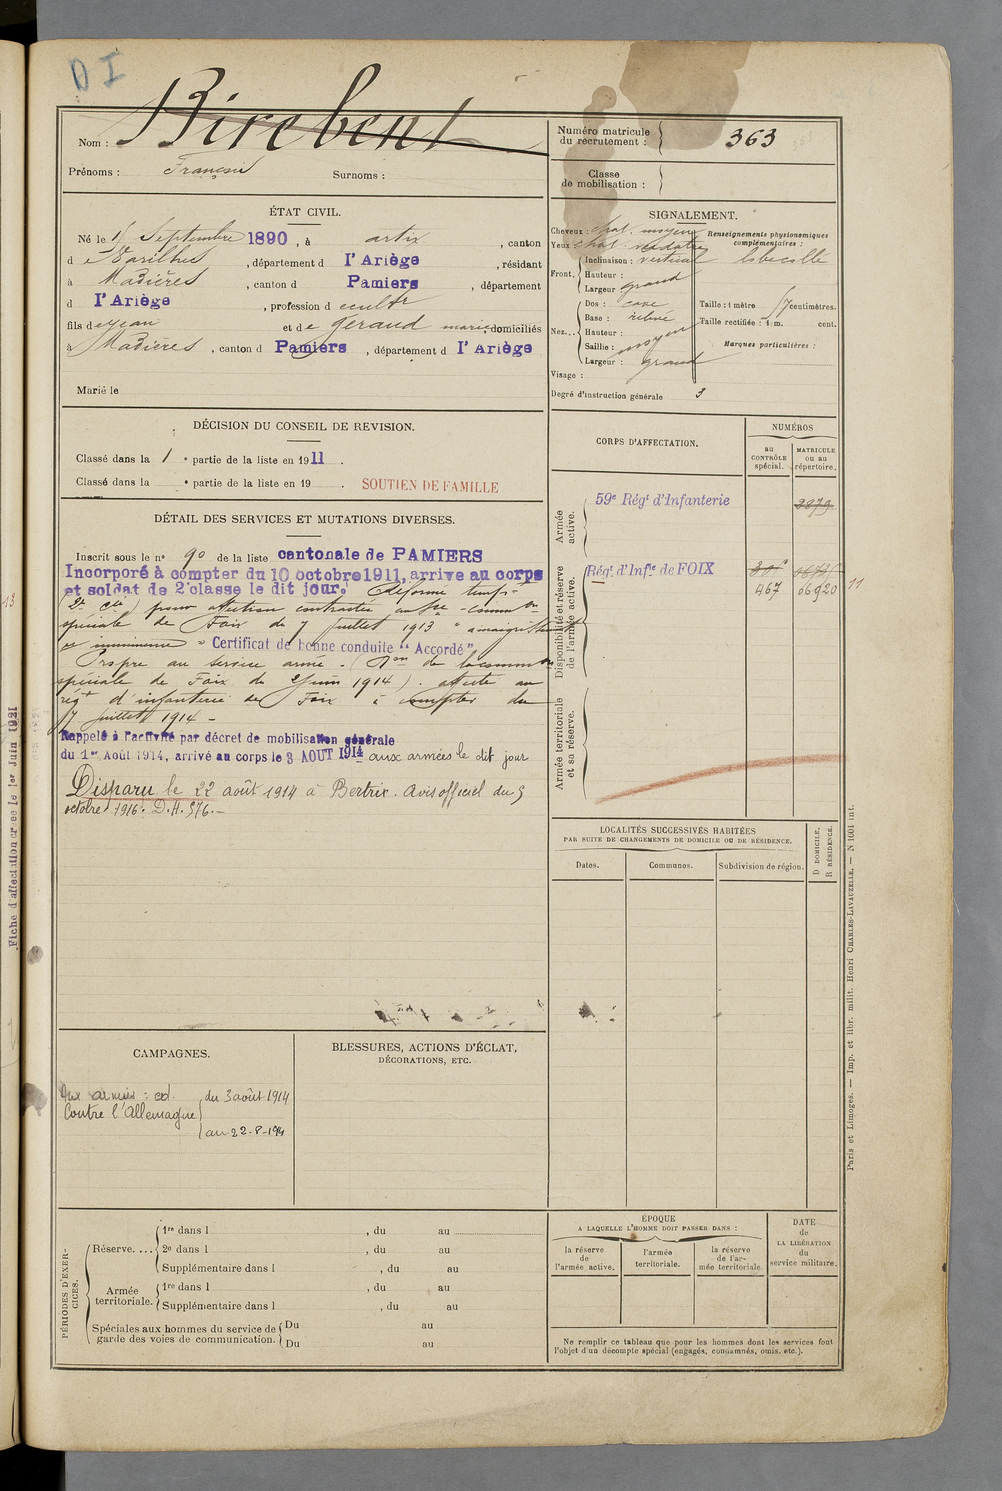 D I
Nom : Birebent
Prénoms : François Surnoms :
Numéro matricule du recrutement : 363
Classe de mobilisation :
ÉTAT CIVIL.
Né le Septembre 1890 , à artix , canton
d e Varilhes , département d l'Ariège , résidant
à Madières , canton d Pamiers , département
d l'Ariège , profession d cult
fils de Jean et de Géraud marie domiciliés
à Madières , canton d Pamiers , département d l'Ariège
Marié le
SIGNALEMENT.
Cheveux : chat. moyens
Yeux chat.
Renseignements physionomiques complémentaires :
Front. Inclinaison : vertical
Hauteur :
Largeur grand
Nez... Dos : cave
Base : relevé
Hauteur :
Saillie : moyen
Largeur : grand
Taille : 1 mètre 57 centimètres.
Taille rectifiée : 1 m. cent.
Marques particulières :
Visage :
Degré d'instruction générale 3
DÉCISION DU CONSEIL DE REVISION.
Classé dans la 1 e partie de la liste en 1911 .
Classé dans la e partie de la liste en 19 . SOUTIEN DE FAMILLE
DÉTAIL DES SERVICES ET MUTATIONS DIVERSES.
Inscrit sous le n° 90 de la liste cantonale de PAMIERS
Incorporé à compter du 10 octobre 1911, arrivé au corps
et soldat de 2e classe le dit jour. Réformé temp
(2e ) pour affection contractée au sce - comm on
spéciale de Foix du 7 juillet 1913
"Certificat de bonne conduite "Accordé"
Propre au service armé - ( on de la comm on
spéciale de Foix du juin 1914). affecté au
régt d'infanterie de Foix à compter du
17 juillet 1914 -
Rappelé à l'activité par décret de mobilisation générale
du 1er Août 1914, arrivé au corps le 3 AOUT 1914 aux armées le dit jour
Disparu le 22 août 1914 à Bertrix. Avis officiel du 5
octobre 1916. D.H. 576.-
CORPS D'AFFECTATION.
NUMÉROS
au CONTRÔLE spécial.
MATRICULE ou au répertoire.
Armée active.
59e Régt d'Infanterie 3879
Disponibilité et réserve de l'armée active.
Régt. d'Infie de FOIX
467 06920 11
Armée territoriale et sa réserve.
LOCALITÉS SUCCESSIVES HABITÉES
PAR SUITE DE CHANGEMENTS DE DOMICILE OU DE RÉSIDENCE.
Dates. Communes. Subdivision de région.
D DOMICILE, R RÉSIDENCE.
CAMPAGNES.
Aux armées : cd.
Contre l'Allemagne
du 3 août 1914
au 22-8-1914
BLESSURES, ACTIONS D'ÉCLAT,
DÉCORATIONS, ETC.
PÉRIODES D'EXERCICES.
Réserve. ... 1re dans l , du au
2e dans l , du au
Supplémentaire dans l , du au
Armée territoriale. 1re dans l , du au
Supplémentaire dans l , du au
Spéciales aux hommes du service de garde des voies de communication. Du au
Du au
ÉPOQUE
A LAQUELLE L'HOMME DOIT PASSER DANS :
la réserve de l'armée active.
l'armée territoriale.
la réserve de l'armée territoriale.
DATE de LA LIBÉRATION du service militaire.
Ne remplir ce tableau que pour les hommes dont les services font
l'objet d'un décompte spécial (engagés, condamnés, omis, etc.).
Paris et Limoges. — Imp. et libr. milit. Henri CHARLES-LAVAUZELLE. — N 1001 int.
Fiche d'affectation créée le 1er Juin 1921